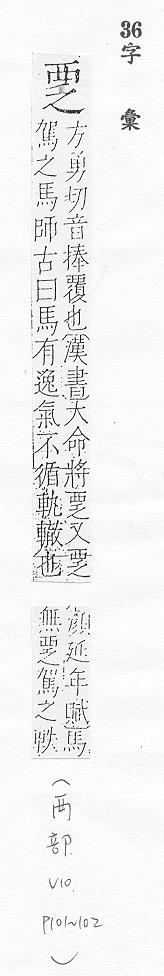 36字彙
覂
方勇切音捧覆也漢書大命將覂又覂
駕之馬師古曰馬有逸氣不循軌轍也
顏延年賦馬
無覂駕之軼
(西部 V10. P101~102)